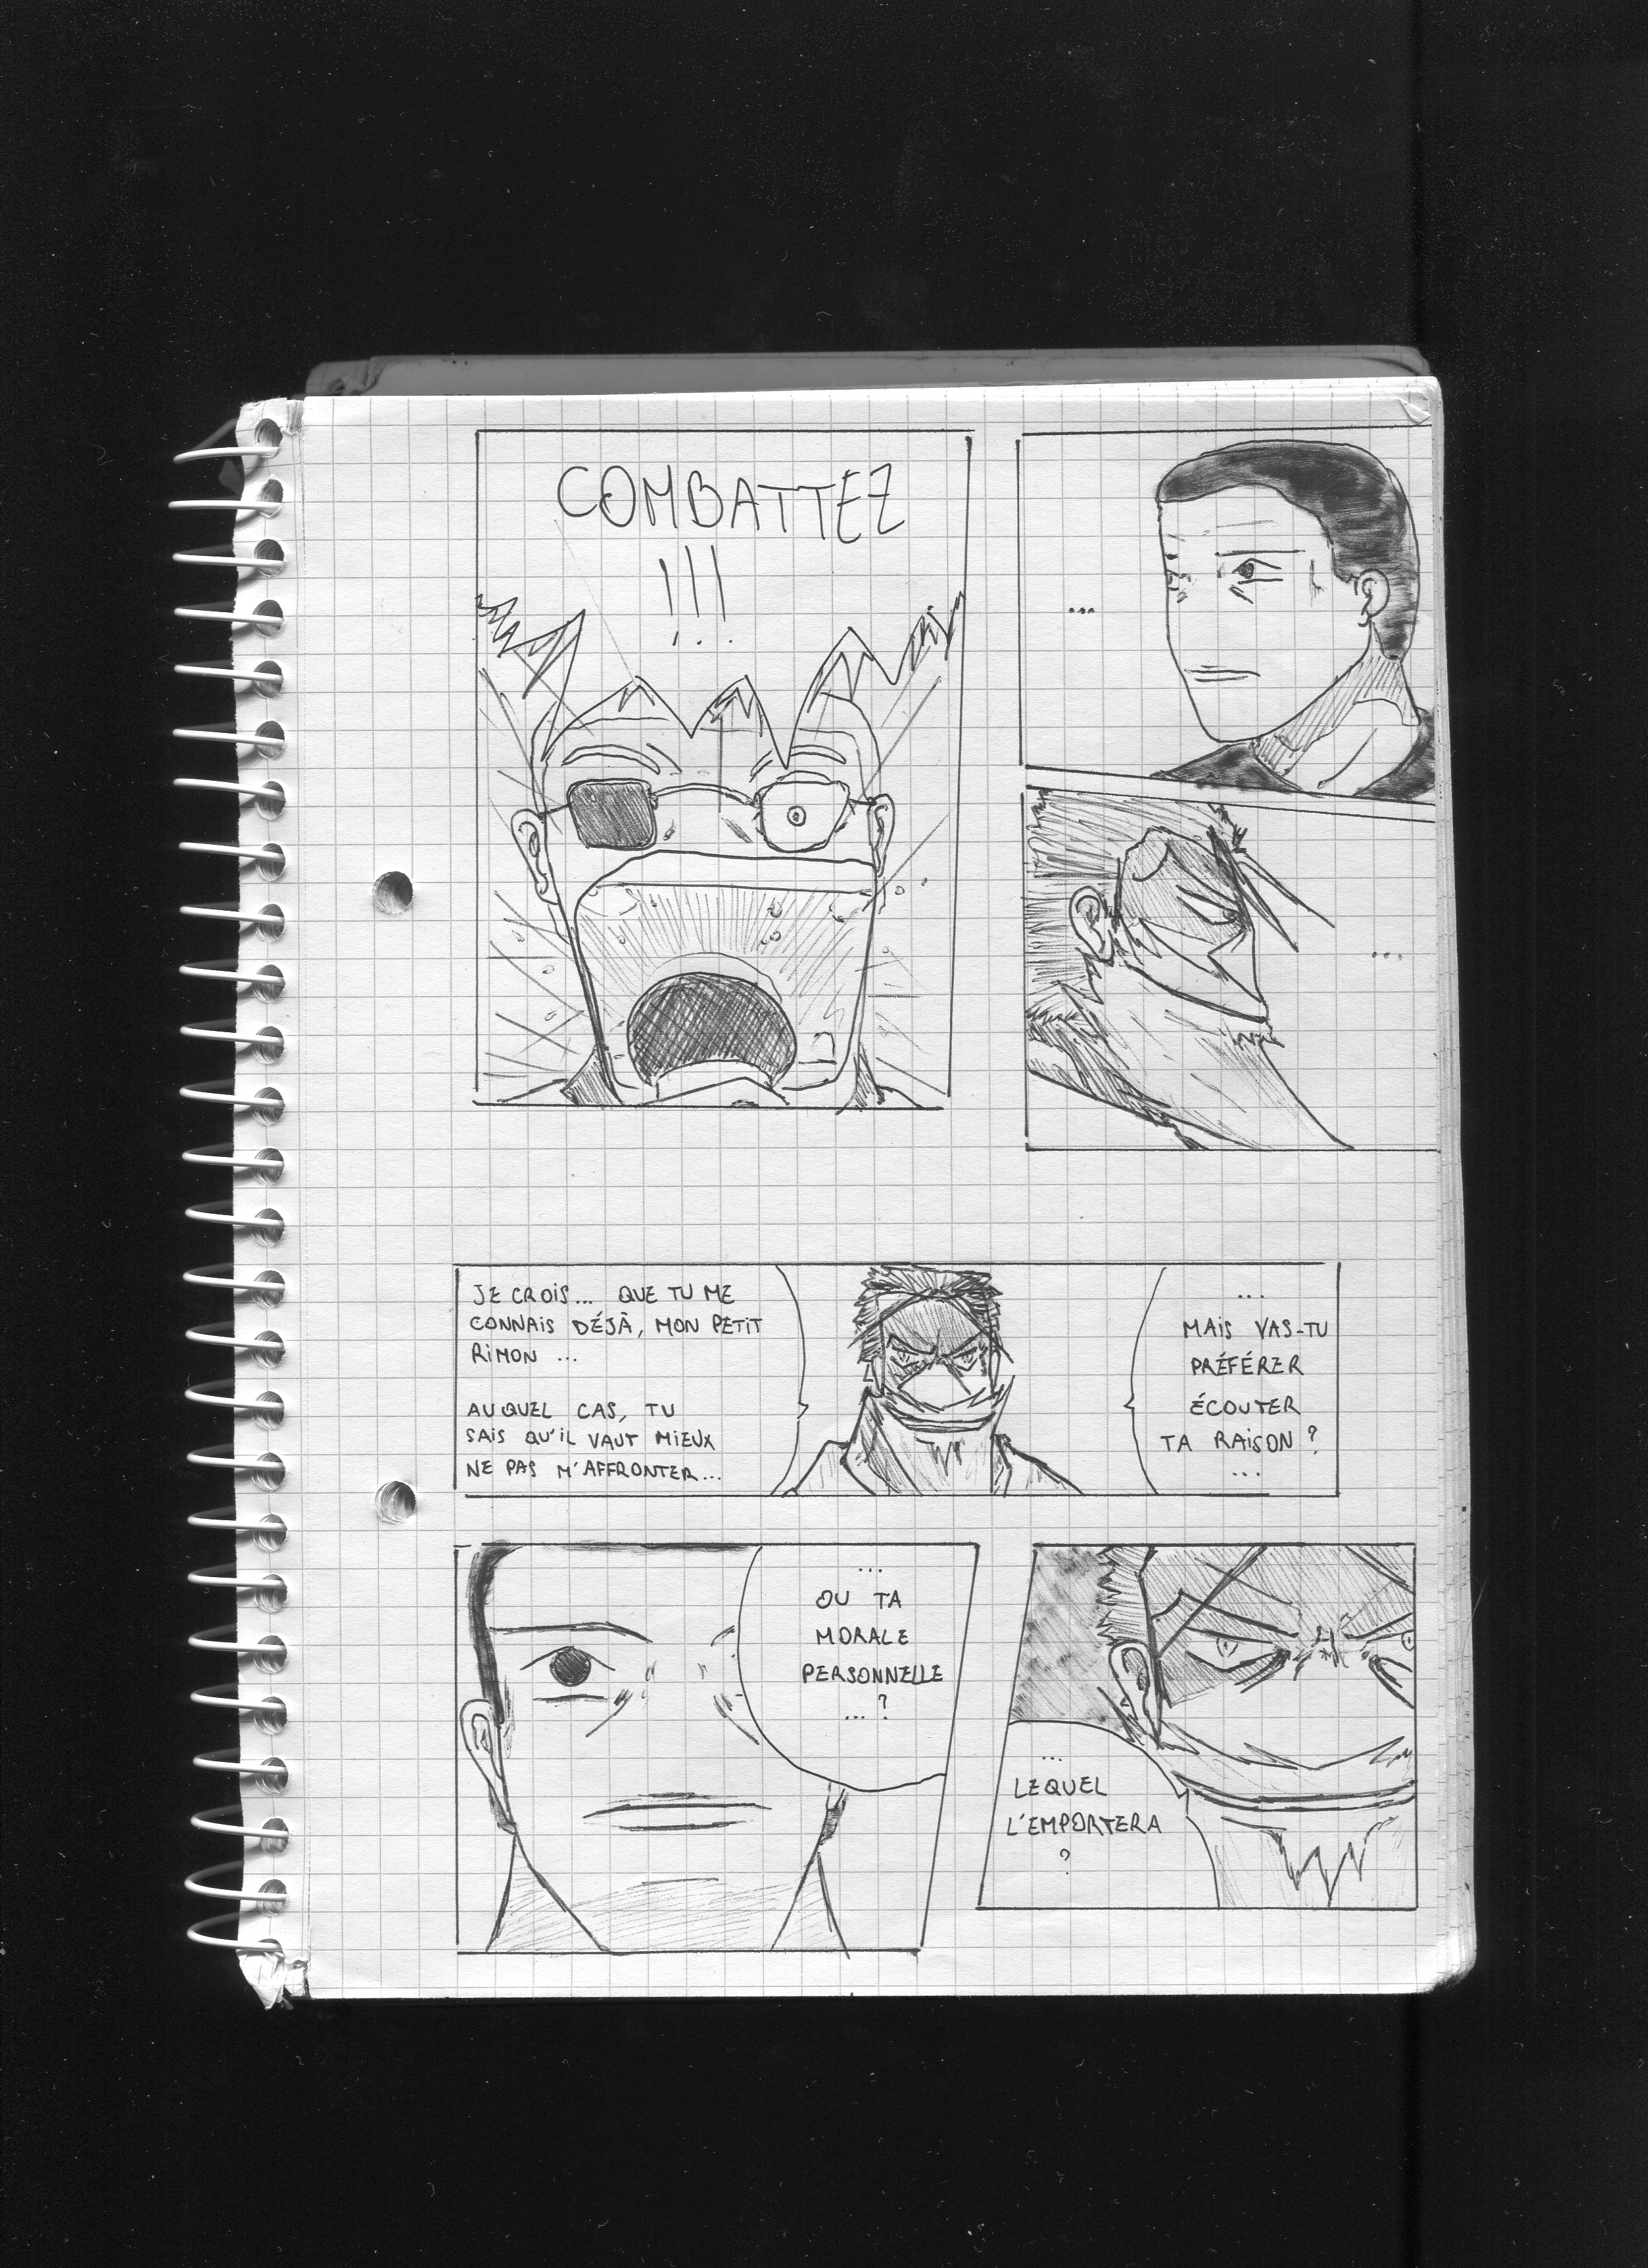 COMBATTEZ
!!!
...
...
JE CROIS... QUE TU ME
CONNAIS DÉJÀ, MON PETIT
RIMON ...
AUQUEL CAS, TU
SAIS QU'IL VAUT MIEUX
NE PAS M'AFFRONTER...
...
MAIS VAS-TU
PRÉFÉRER
ÉCOUTER
TA RAISON ?
...
...
OU TA
MORALE
PERSONNELLE
... ?
...
LEQUEL
L'EMPORTERA
?